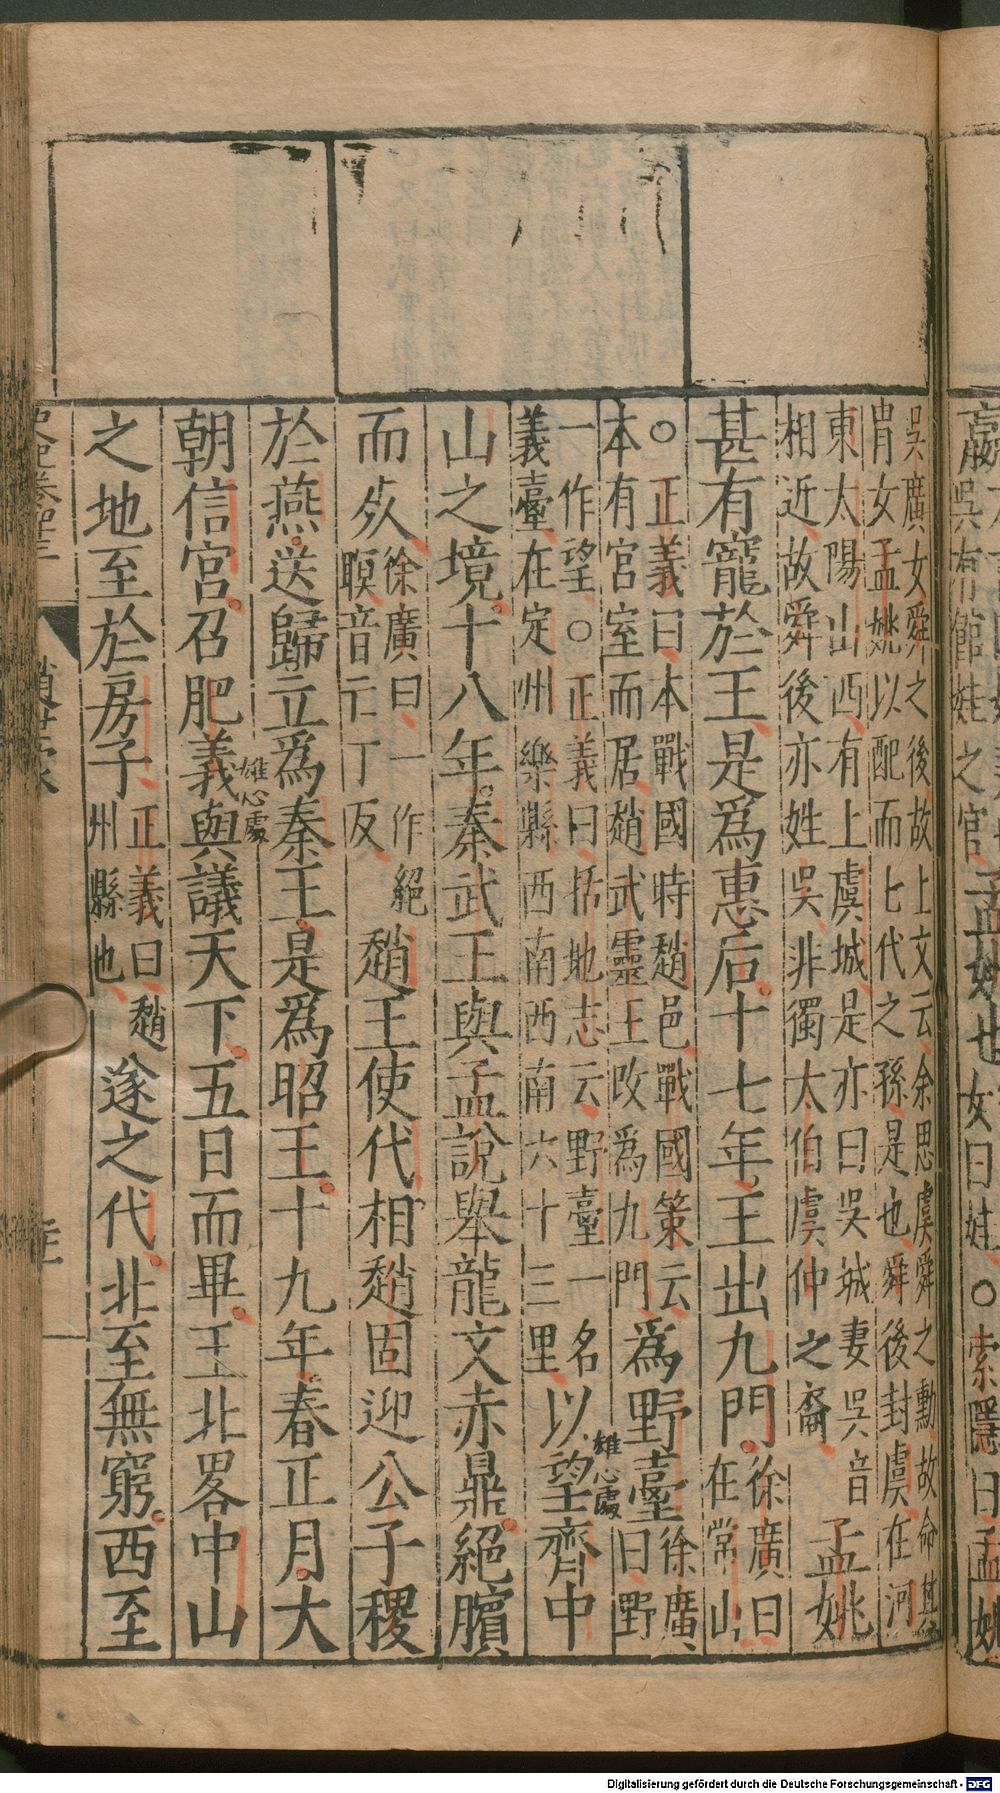 吳廣女舜之後故上文云余思虞舜之勳故命其
胄女孟姚以配而七代之孫是也舜後封虞在河
東太陽山西有上虞城是亦曰吳城妻吳音
相近故舜後亦姓吳非獨太伯虞仲之裔
孟姚
甚有寵於王是爲惠后十七年王出九門
徐廣曰
在常山
○正義曰本戰國時趙邑戰國策云
本有宮室而居趙武靈王改爲九門
爲野臺
徐廣
曰野
一作望○正義曰括地志云野臺一名
義臺在定州樂縣西南西南六十三里
以望齊中
雄心處
山之境十八年秦武王與孟說舉龍文赤鼎絕臏
而死
徐廣曰一作絕
瞑音亡丁反
趙王使代相趙固迎公子稷
於燕送歸立爲秦王是爲昭王十九年春正月大
朝信宮召肥義與議天下五日而畢王北畧中山
雄心處
之地至於房子
正義曰趙
州縣也
遂之代北至無窮西至
史記卷四十三
趙世家
嬴
吳有館娃之宮孟姚也女曰娃○索隱曰孟姚
Digitalisierung gefördert durch die Deutsche Forschungsgemeinschaft - DFG